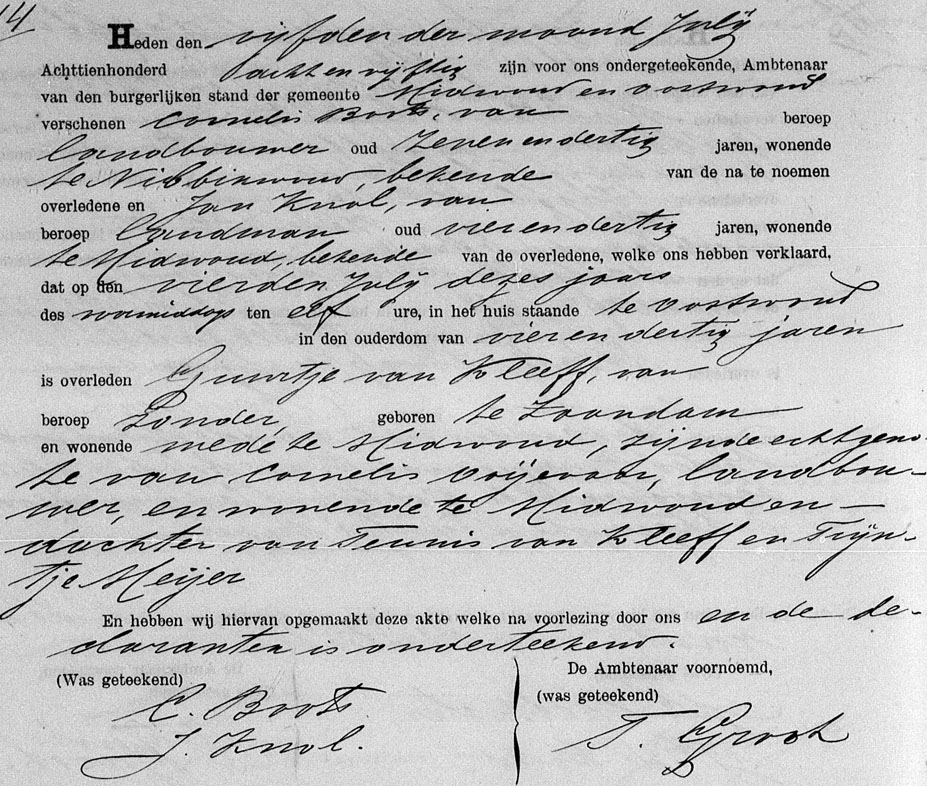 14
Heden den vijfden der maand July
Achttienhonderd acht en vijftig zijn voor ons ondergeteekende, Ambtenaar
van den burgerlijken stand der gemeente Midwoud en Oostwoud
verschenen Cornelis Boots, van beroep
landbouwer oud zeven en dertig jaren, wonende
te Nibbixwoud, bekende van de na te noemen
overledene en Jan Knol, van
beroep landman oud vier en dertig jaren, wonende
te Midwoud, bekende van de overledene, welke ons hebben verklaard,
dat op den vierden July dezes jaars
des voormiddags ten elf ure, in het huis staande te Oostwoud
in den ouderdom van vier en dertig jaren
is overleden Guurtje van Kleeff, van
beroep zonder, geboren te Zaandam
en wonende mede te Midwoud, zijnde echtgeno-
te van Cornelis Ooijevaar, landbou-
wer, en wonende te Midwoud en —
dochter van Teunis van Kleeff en Trijn-
tje Meijer
En hebben wij hiervan opgemaakt deze akte welke na voorlezing door ons en de de-
claranten is onderteekend.
(Was geteekend) De Ambtenaar voornoemd,
(was geteekend)
C. Boots.
J. Knol. T. Groot